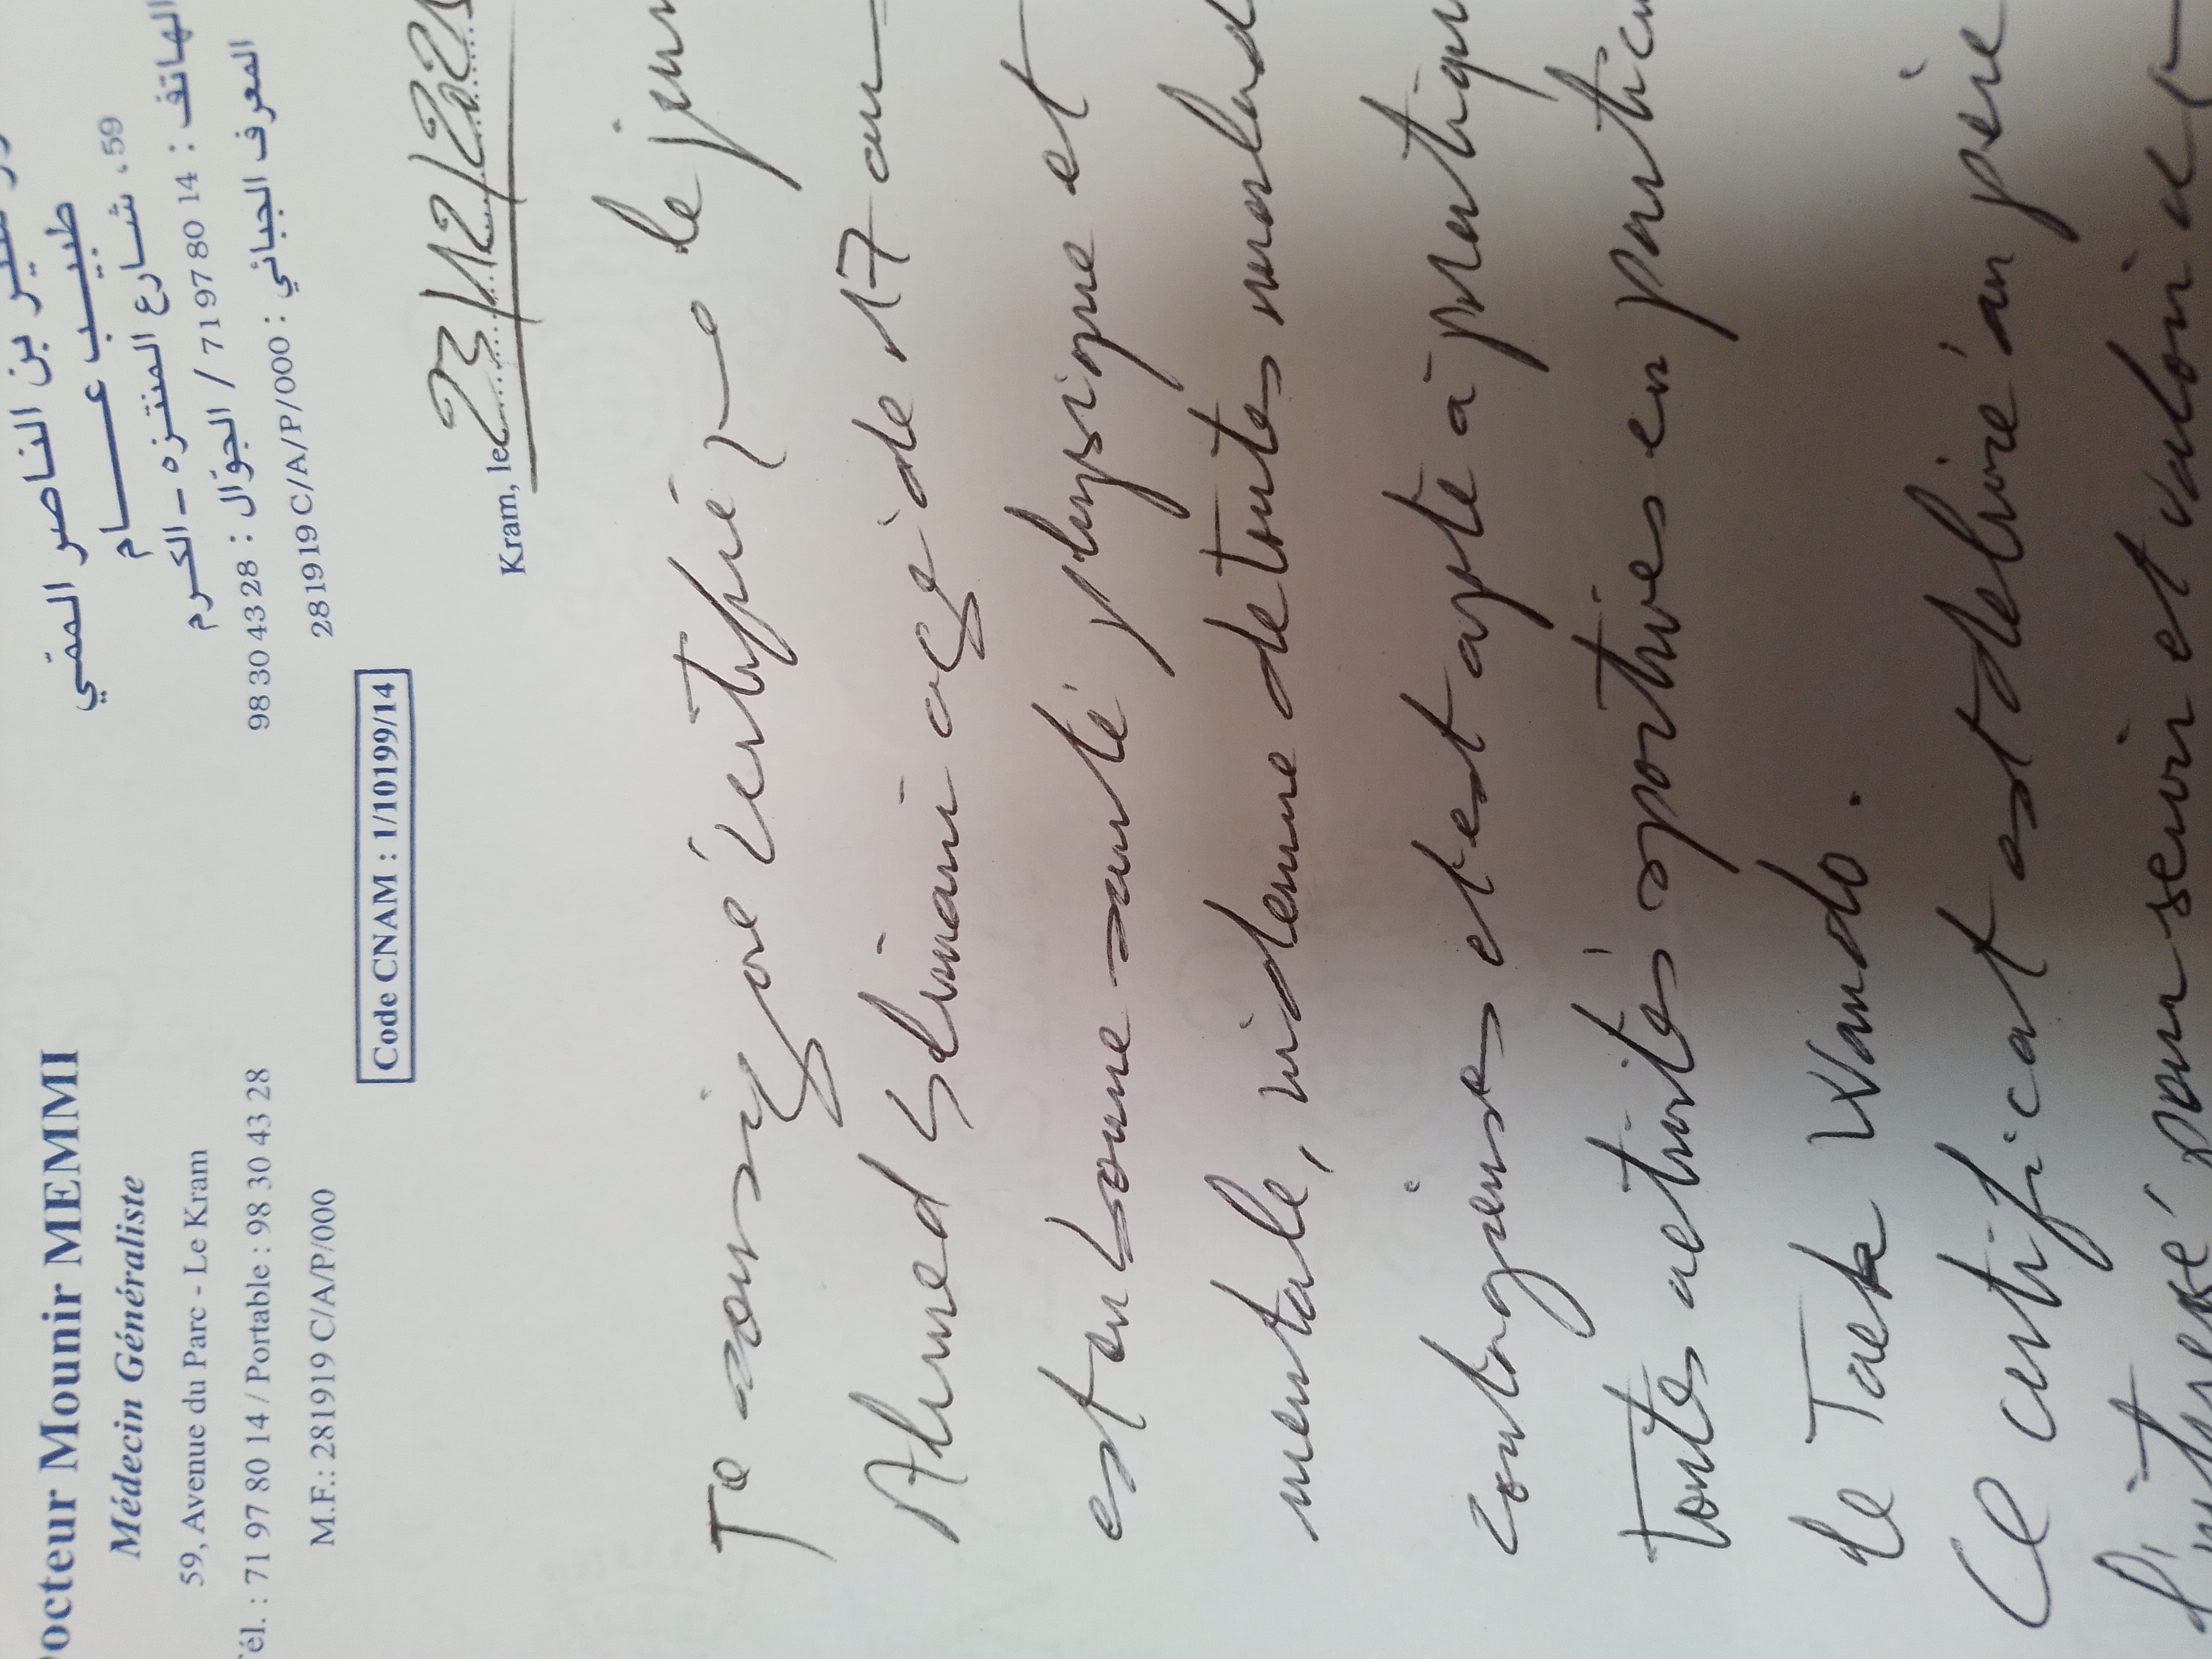 Docteur Mounir MEMMI
Médecin Généraliste
59, Avenue du Parc - Le Kram
Tél. : 71 97 80 14 / Portable : 98 30 43 28
M.F.: 281919 C/A/P/000
بن الناصر الممّي
طبيب عـام
59، شارع المنتزه - الكرم
الهاتف : 71 97 80 14 / الجوّال : 98 30 43 28
المعرف الجبائي : 281919 C/A/P/000
Code CNAM : 1/10199/14
Kram, le 23/12/2021
Je soussigné certifié que le jeun
Ahmed Slimani agé de 17 an
est en bonne santé physique et
mentale, indemne de toutes malad
contagieuses et est apte à pratiqu
toutes activités sportives en particu
de Taek Wando.
Ce certificat est délivré au père
l'intéressé pour servir et valoir de